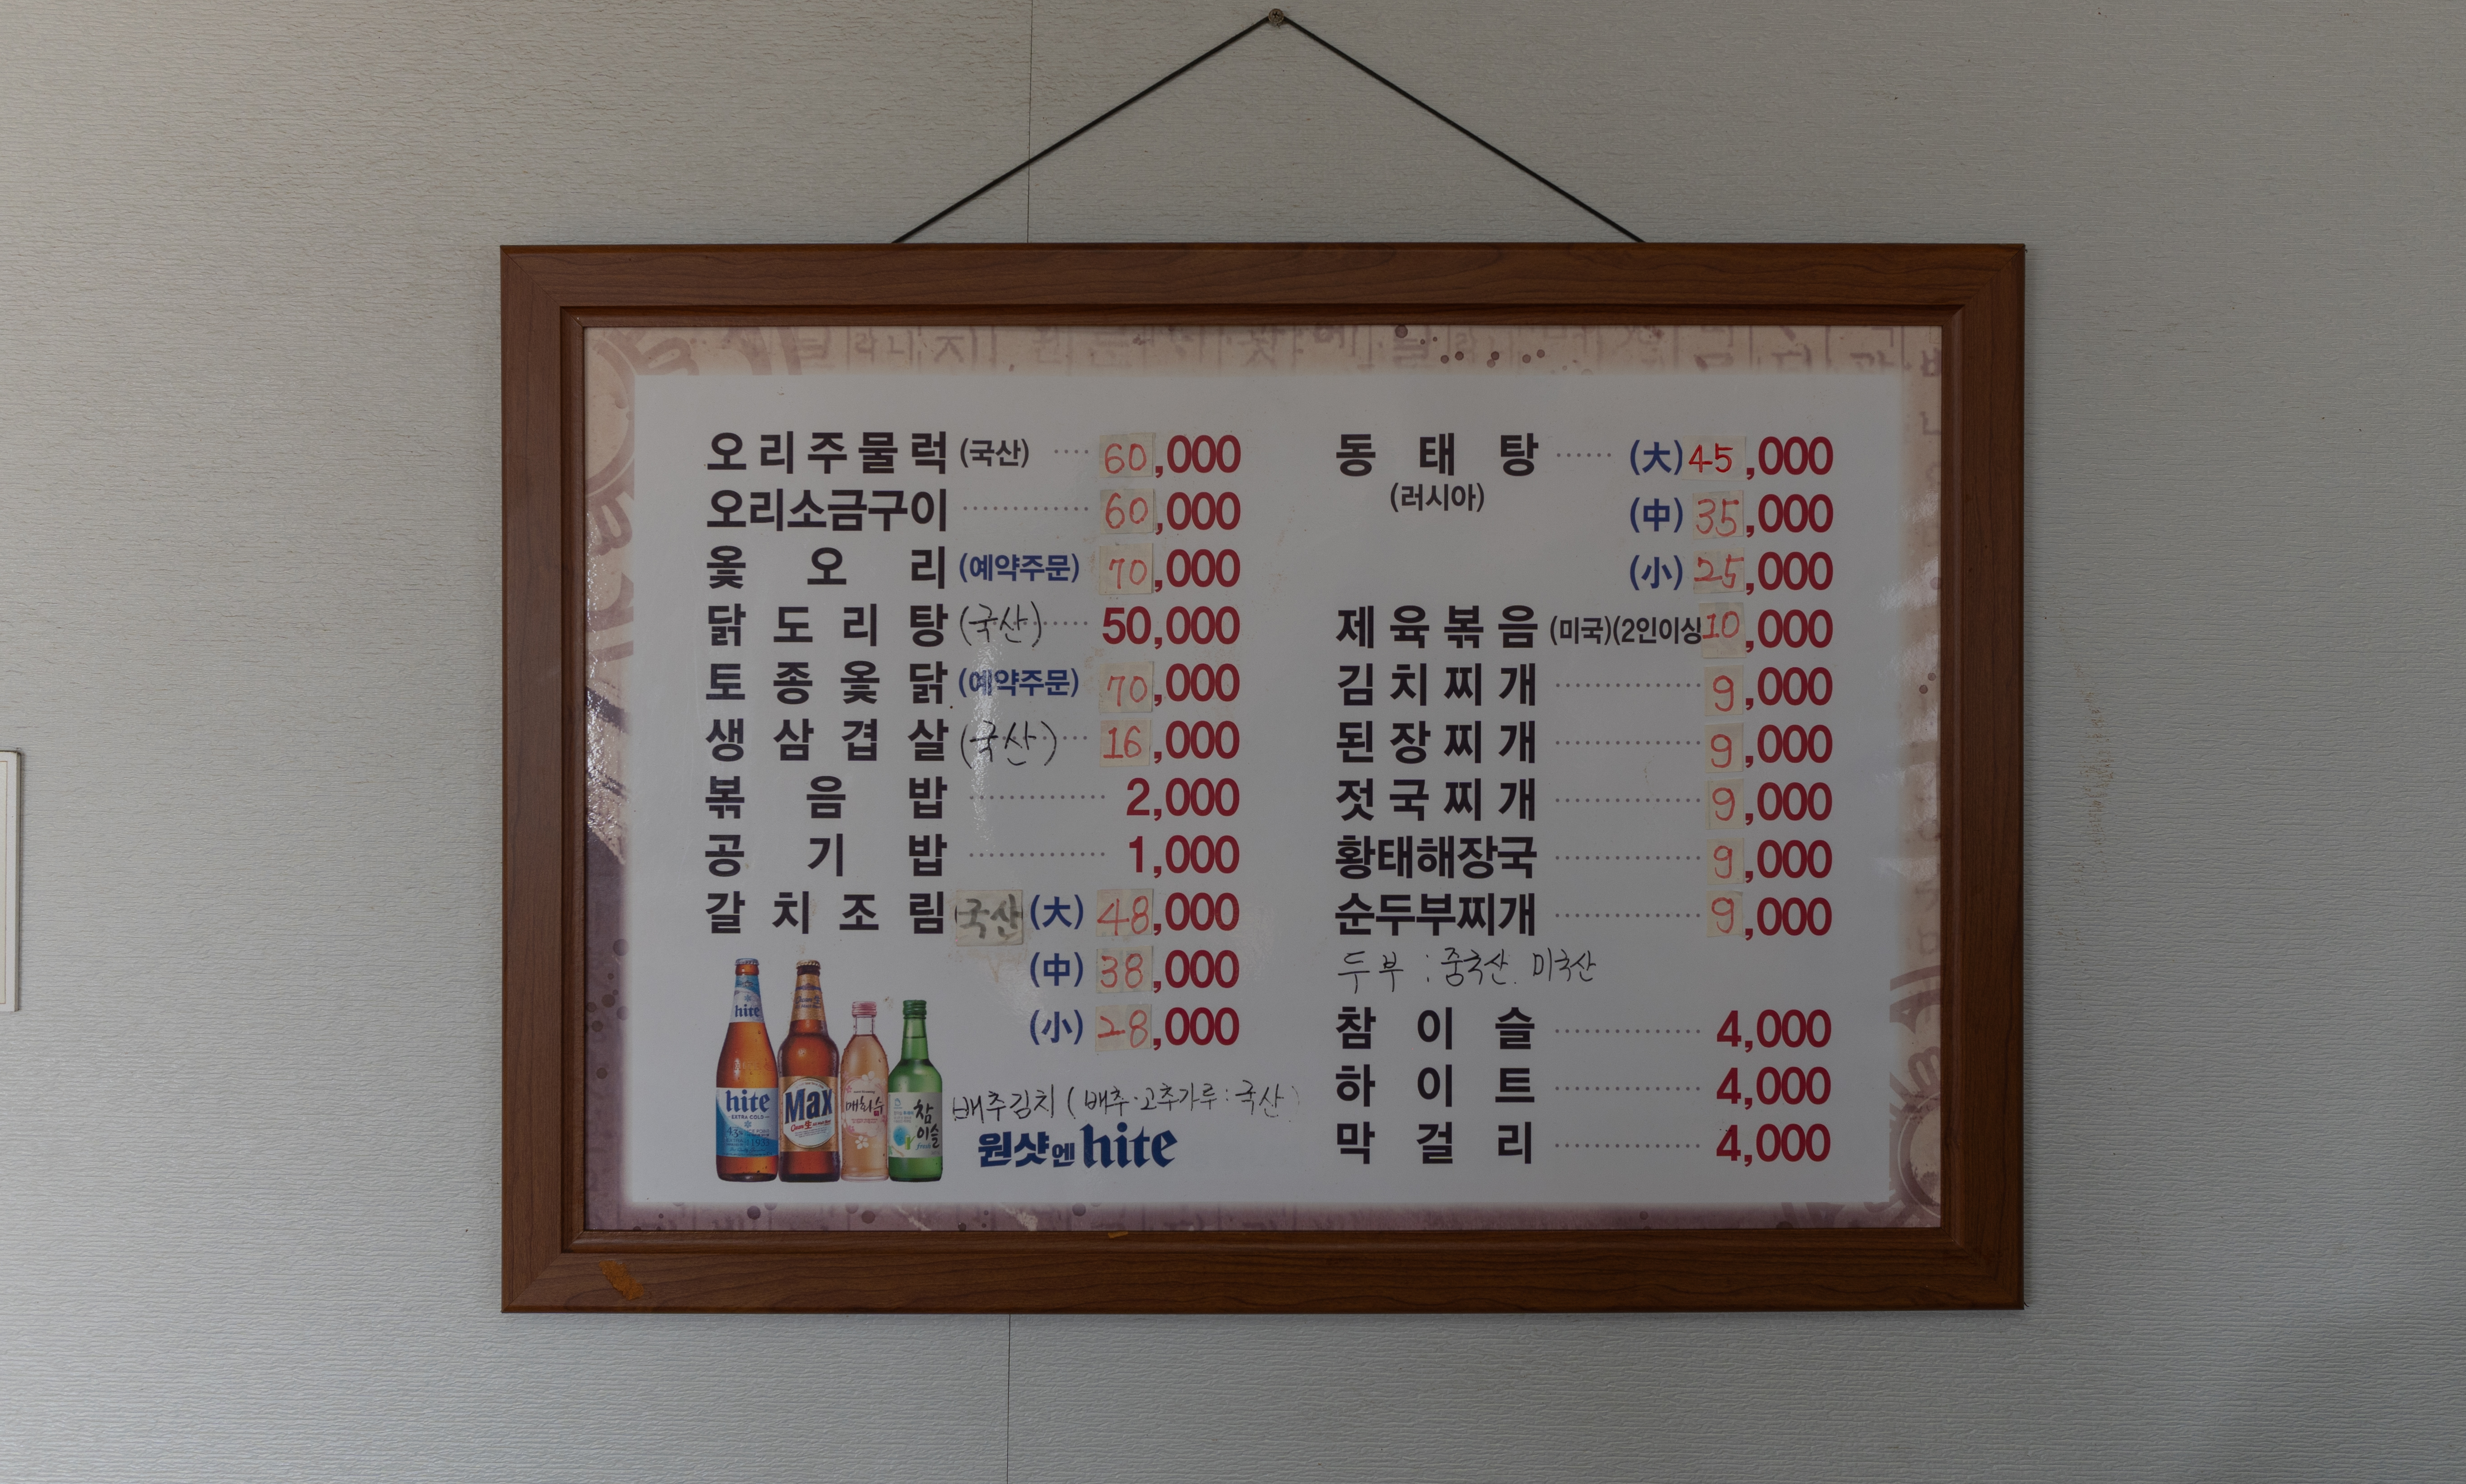 오리주물럭 (국산) ···· 60,000
오리소금구이 ············ 60,000
옻 오 리 (예약주문) 70,000
닭 도 리 탕 (국산) 50,000
토 종 옻 닭 (예약주문) 70,000
생 삼 겹 살 (국산) 16,000
볶 음 밥 ············ 2,000
공 기 밥 ············ 1,000
갈 치 조 림 국산 (大) 48,000
(中) 38,000
(小) 28,000
hite
hite
EXTRA COLD
Max
매화수
참이슬
배추김치 ( 배추·고추가루 : 국산 )
원샷엔 hite
동 태 탕 ······ (大) 45,000
(러시아)
(中) 35,000
(小) 25,000
제 육 볶 음 (미국)(2인이상 10,000
김 치 찌 개 ············ 9,000
된 장 찌 개 ············ 9,000
젓 국 찌 개 ············ 9,000
황태해장국 ············ 9,000
순두부찌개 ············ 9,000
두부 : 중국산. 미국산
참 이 슬 ············ 4,000
하 이 트 ············ 4,000
막 걸 리 ············ 4,000